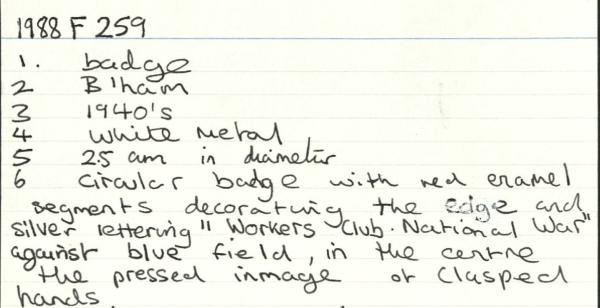 1988 F 259
1. badge
2 B'ham
3 1940's
4 White Metal
5 25 am in diameter
6 Circular badge with red enamel
segments decorating the edge and
silver lettering " Workers Club. National War"
against blue field, in the centre
the pressed inmage of Clasped
hands.